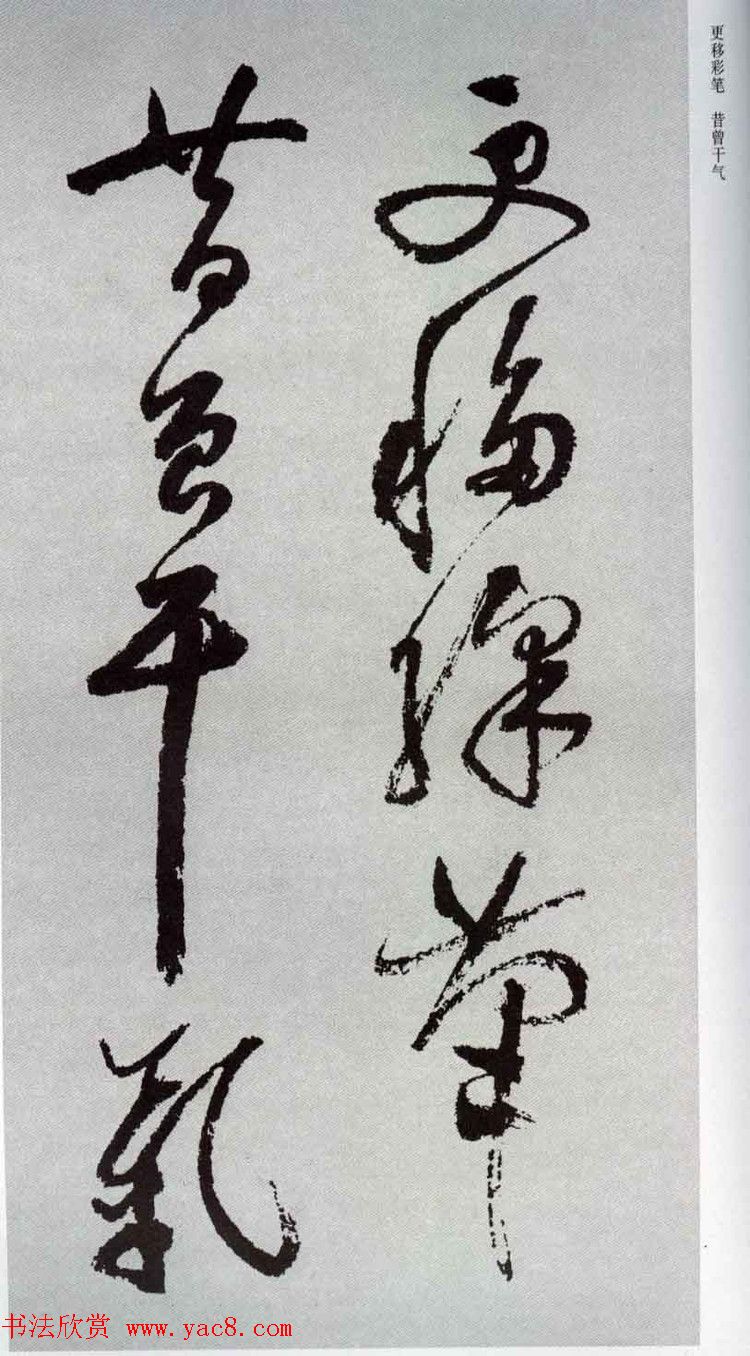 更移彩笔　昔曾干气
更移綵筆
昔曾干氣
书法欣赏 www.yac8.com